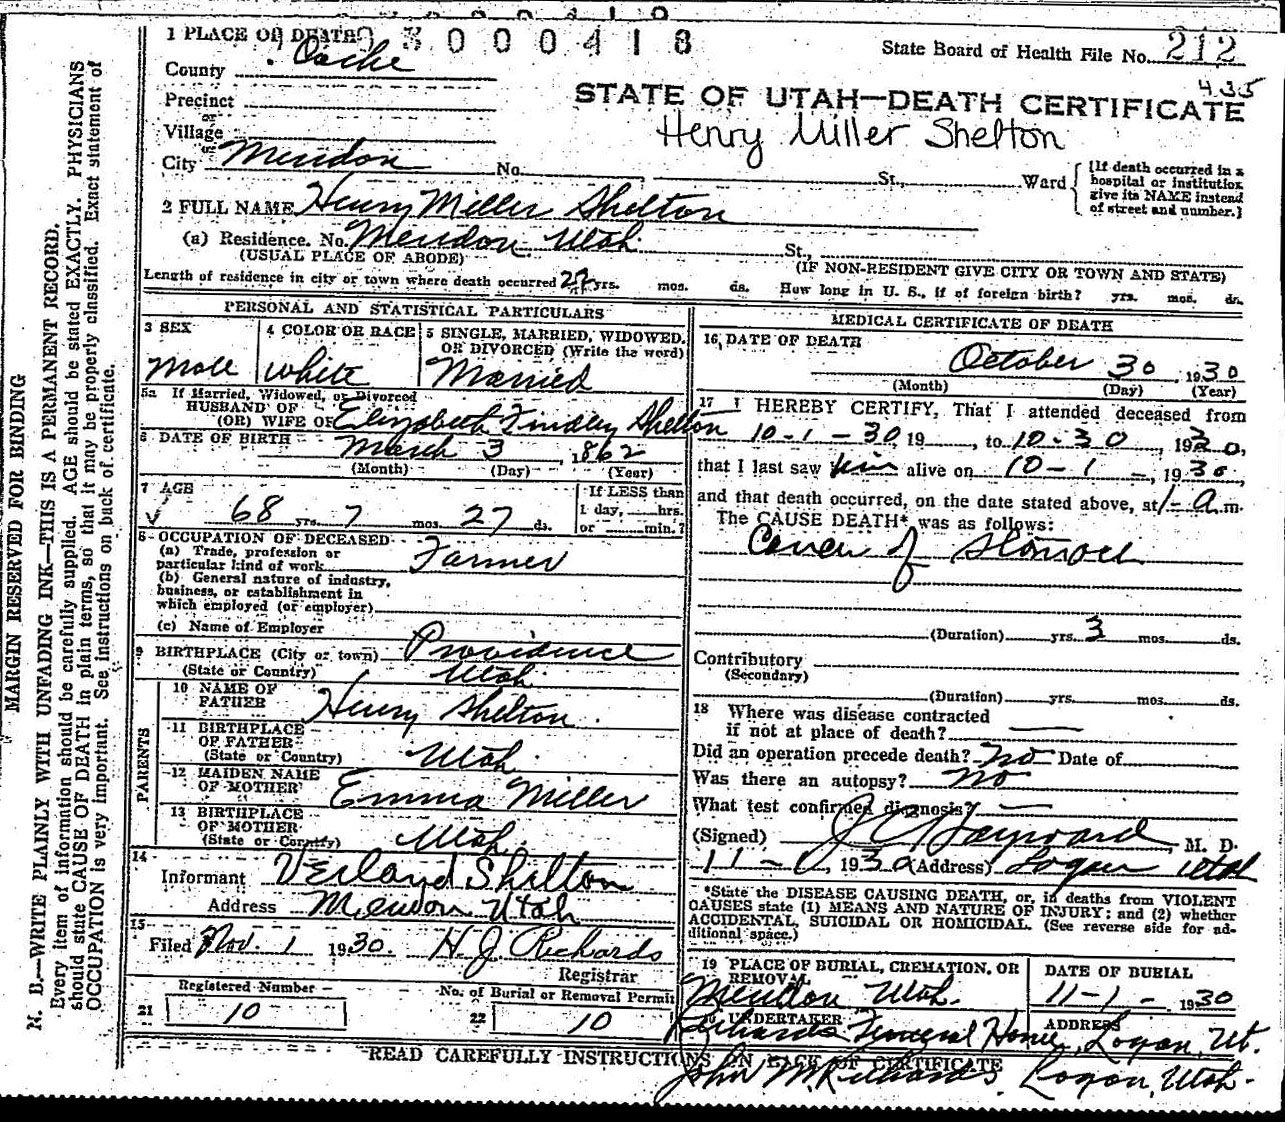 1 PLACE OF DEATH
3 0 0 0 4 1 8
State Board of Health File No. 212
County Cache
435
Precinct
STATE OF UTAH—DEATH CERTIFICATE
or
Village
Henry Miller Shelton
or
City Mendon No. St., Ward
[If death occurred in a
hospital or institution
give its NAME instead
of street and number.]
2 FULL NAME Henry Miller Shelton
(a) Residence. No. Mendon Utah. St.,
(USUAL PLACE OF ABODE)
(IF NON-RESIDENT GIVE CITY OR TOWN AND STATE)
Length of residence in city or town where death occurred 22 yrs. mos. ds. How long in U. S., if of foreign birth? yrs. mos. ds.
PERSONAL AND STATISTICAL PARTICULARS
3 SEX
Male
4 COLOR OR RACE
white
5 SINGLE, MARRIED, WIDOWED,
OR DIVORCED (Write the word)
Married
5a If Married, Widowed, or Divorced
HUSBAND OF
(OR) WIFE OF Elizabeth Findley Shelton
6 DATE OF BIRTH March 3, 1862
(Month) (Day) (Year)
7 AGE
68 yrs. 7 mos. 27 ds.
If LESS than
1 day, hrs.
or min.?
8 OCCUPATION OF DECEASED
(a) Trade, profession or
particular kind of work Farmer
(b) General nature of industry,
business, or establishment in
which employed (or employer)
(c) Name of Employer
9 BIRTHPLACE (City or town) Providence
(State or Country) Utah.
PARENTS
10 NAME OF
FATHER Henry Shelton.
11 BIRTHPLACE
OF FATHER
(State or Country) Utah.
12 MAIDEN NAME
OF MOTHER Emma Miller
13 BIRTHPLACE
OF MOTHER
(State or Country) Utah.
14
Informant Verland Shelton
Address Mendon Utah
15
Filed Nov. 1 1930. H. J. Richards
Registrar
Registered Number
21 10
No. of Burial or Removal Permit
22 10
MEDICAL CERTIFICATE OF DEATH
16 DATE OF DEATH
October 30, 1930
(Month) (Day) (Year)
17 I HEREBY CERTIFY, That I attended deceased from
10-1-30 19, to 10-30, 1930,
that I last saw him alive on 10-1-, 1930
and that death occurred, on the date stated above, at 1- a m.
The CAUSE DEATH* was as follows:
Cancer of Stomach
(Duration) yrs. 3 mos. ds.
Contributory
(Secondary)
(Duration) yrs. mos. ds.
18 Where was disease contracted
if not at place of death? —
Did an operation precede death? No Date of
Was there an autopsy? No
What test confirmed diagnosis? —
(Signed) J C Hayward, M. D.
11-1, 1930 (Address) Logan Utah
*State the DISEASE CAUSING DEATH, or, in deaths from VIOLENT
CAUSES state (1) MEANS AND NATURE OF INJURY; and (2) whether
ACCIDENTAL, SUICIDAL OR HOMICIDAL. (See reverse side for ad-
ditional space.)
19 PLACE OF BURIAL, CREMATION, OR
REMOVAL
Mendon Utah.
DATE OF BURIAL
11-1-, 1930
UNDERTAKER
ADDRESS
Richards Funeral Home, Logan, Ut.
READ CAREFULLY INSTRUCTIONS ON BACK OF CERTIFICATE
John M. Richards. Logan, Utah.
MARGIN RESERVED FOR BINDING
N. B.—WRITE PLAINLY WITH UNFADING INK—THIS IS A PERMANENT RECORD.
Every item of information should be carefully supplied. AGE should be stated EXACTLY. PHYSICIANS
should state CAUSE OF DEATH in plain terms, so that it may be properly classified. Exact statement of
OCCUPATION is very important. See instructions on back of certificate.